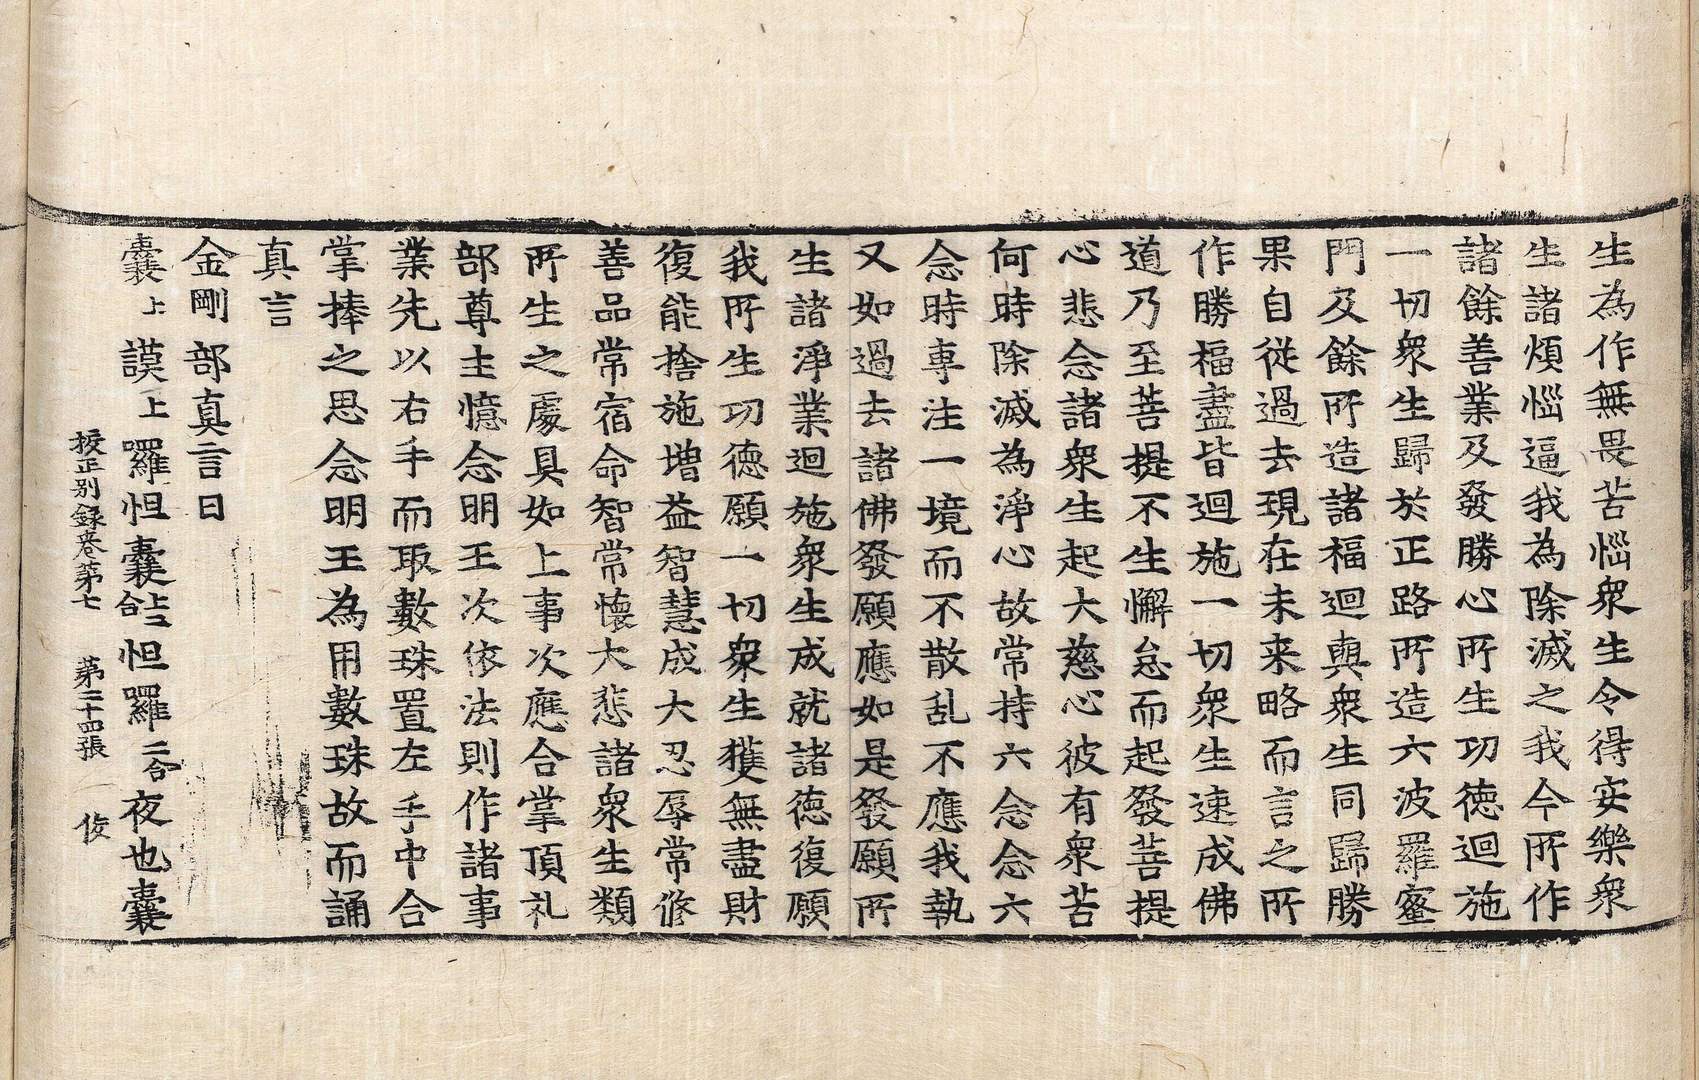 生為作無畏苦惱衆生令得安樂衆
生諸煩惱逼我為除滅之我今所作
諸餘善業及發勝心所生功徳迴施
一切衆生歸於正路所造六波羅蜜
門及餘所造諸福迴與衆生同歸勝
果自從過去現在未来略而言之所
作勝福盡皆迴施一切衆生速成佛
道乃至菩提不生懈怠而起發菩提
心悲念諸衆生起大慈心彼有衆苦
何時除滅為淨心故常持六念念六
念時專注一境而不散乱不應我執
又如過去諸佛發願應如是發願所
生諸淨業迴施衆生成就諸徳復願
我所生功徳願一切衆生獲無盡財
復能捨施增益智慧成大忍辱常修
善品常宿命智常懷大悲諸衆生類
所生之處具如上事次應合掌頂礼
部尊主憶念明王次依法則作諸事
業先以右手而取數珠置左手中合
掌捧之思念明王為用數珠故而誦
真言
金剛部真言曰
囊上謨上囉怛囊上二合怛囉二合夜也囊
挍正别録卷第七 第二十四張 俊